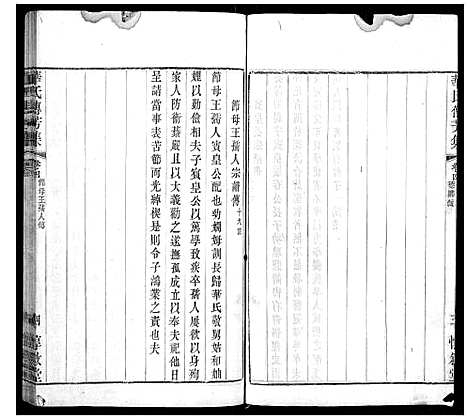 節母王孺人賓皇公配也幼嫻姆訓長歸華氏敬舅姑和妯
娌以勤儉相夫子賓皇公以篤學致疾卒孺人屢欲以身殉
家人防衛甚嚴且以大義勸之遂撫孤成立以奉夫祀他日
呈請當事表苦節而光綽楔是則令子鴻業之責也夫
節母王孺人賓皇公宗譜傳 十九世
華氏傳芳集
卷四
節母王孺人傳
四